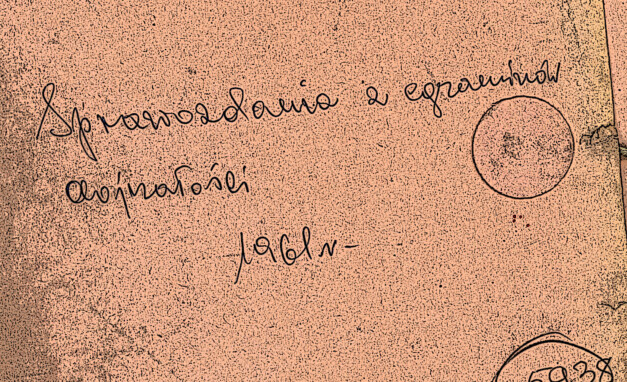 Sprawozdania z egzaminów
dojrzałości
1961 r -
5938